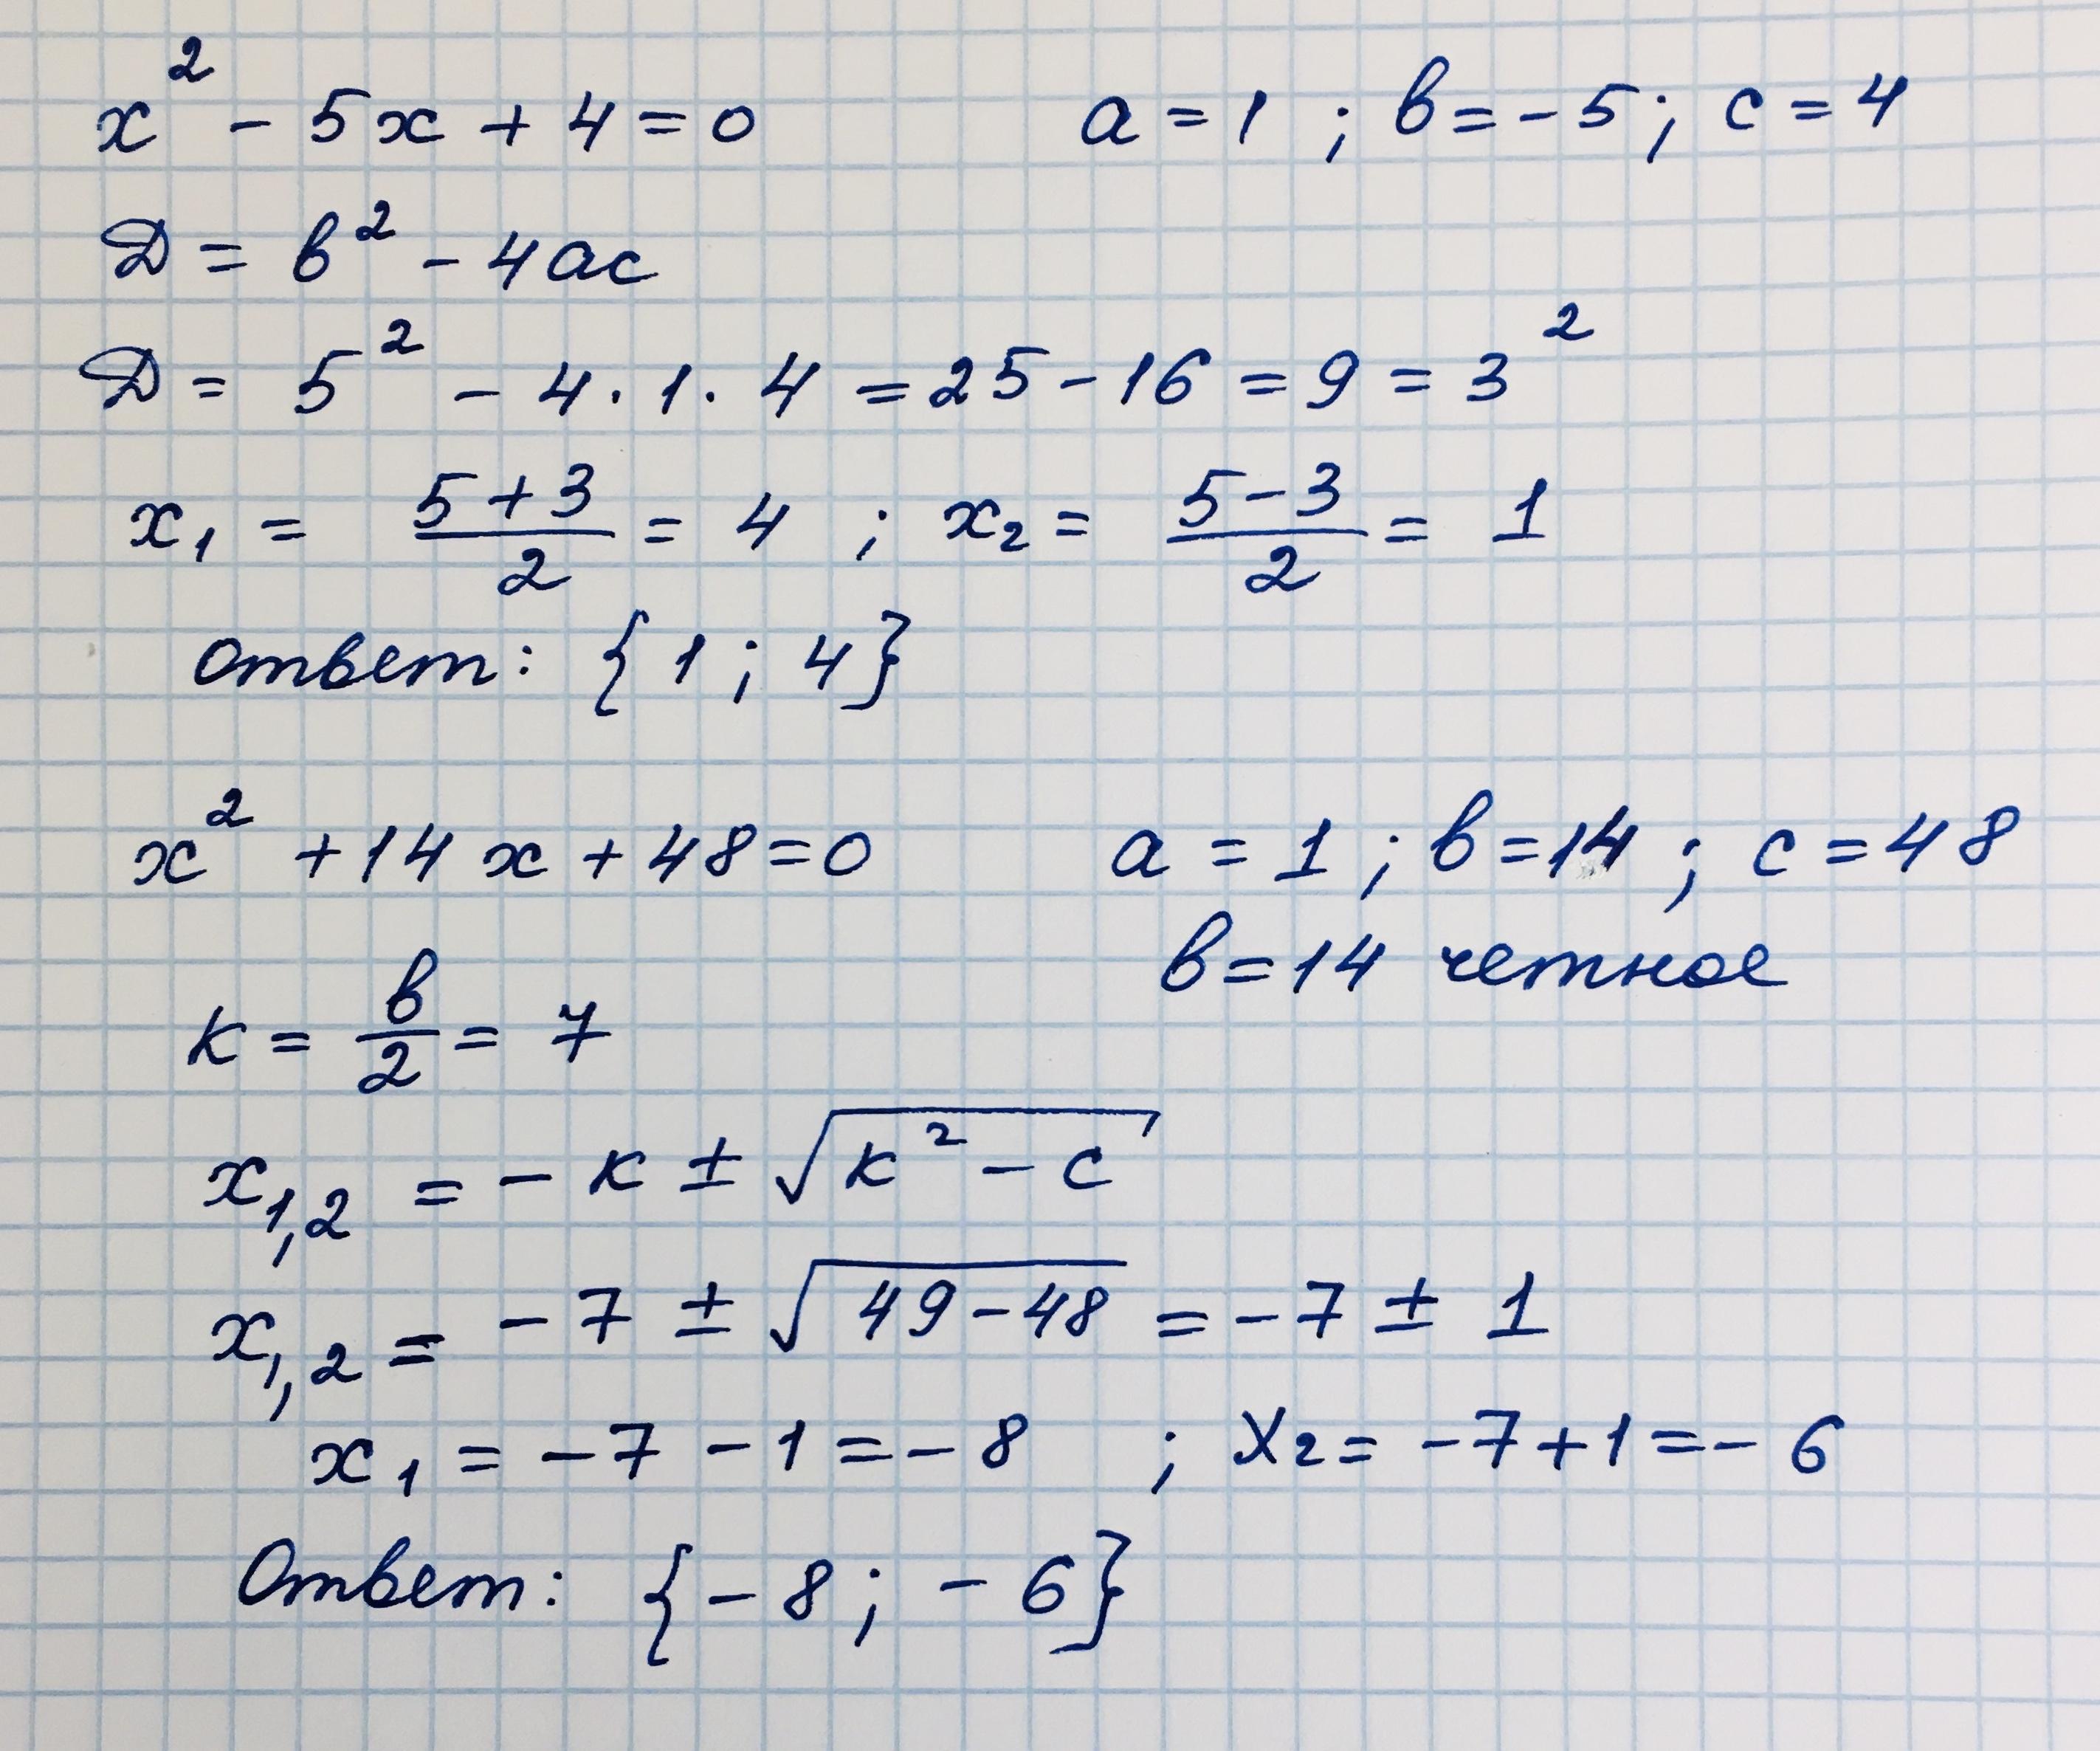 x² - 5x + 4 = 0    a = 1 ; в = -5 ; c = 4
Д = в² - 4ac
Д = 5² - 4 · 1 · 4 = 25 - 16 = 9 = 3²
x₁ = (5 + 3)/2 = 4 ; x₂ = (5 - 3)/2 = 1
ответ: {1 ; 4}
x² + 14x + 48 = 0    a = 1 ; в = 14 ; c = 48
в = 14 четное
к = в/2 = 7
x₁,₂ = - к ± √(к² - c)
x₁,₂ = - 7 ± √(49 - 48) = - 7 ± 1
x₁ = - 7 - 1 = - 8 ; x₂ = - 7 + 1 = - 6
Ответ: {- 8 ; - 6}